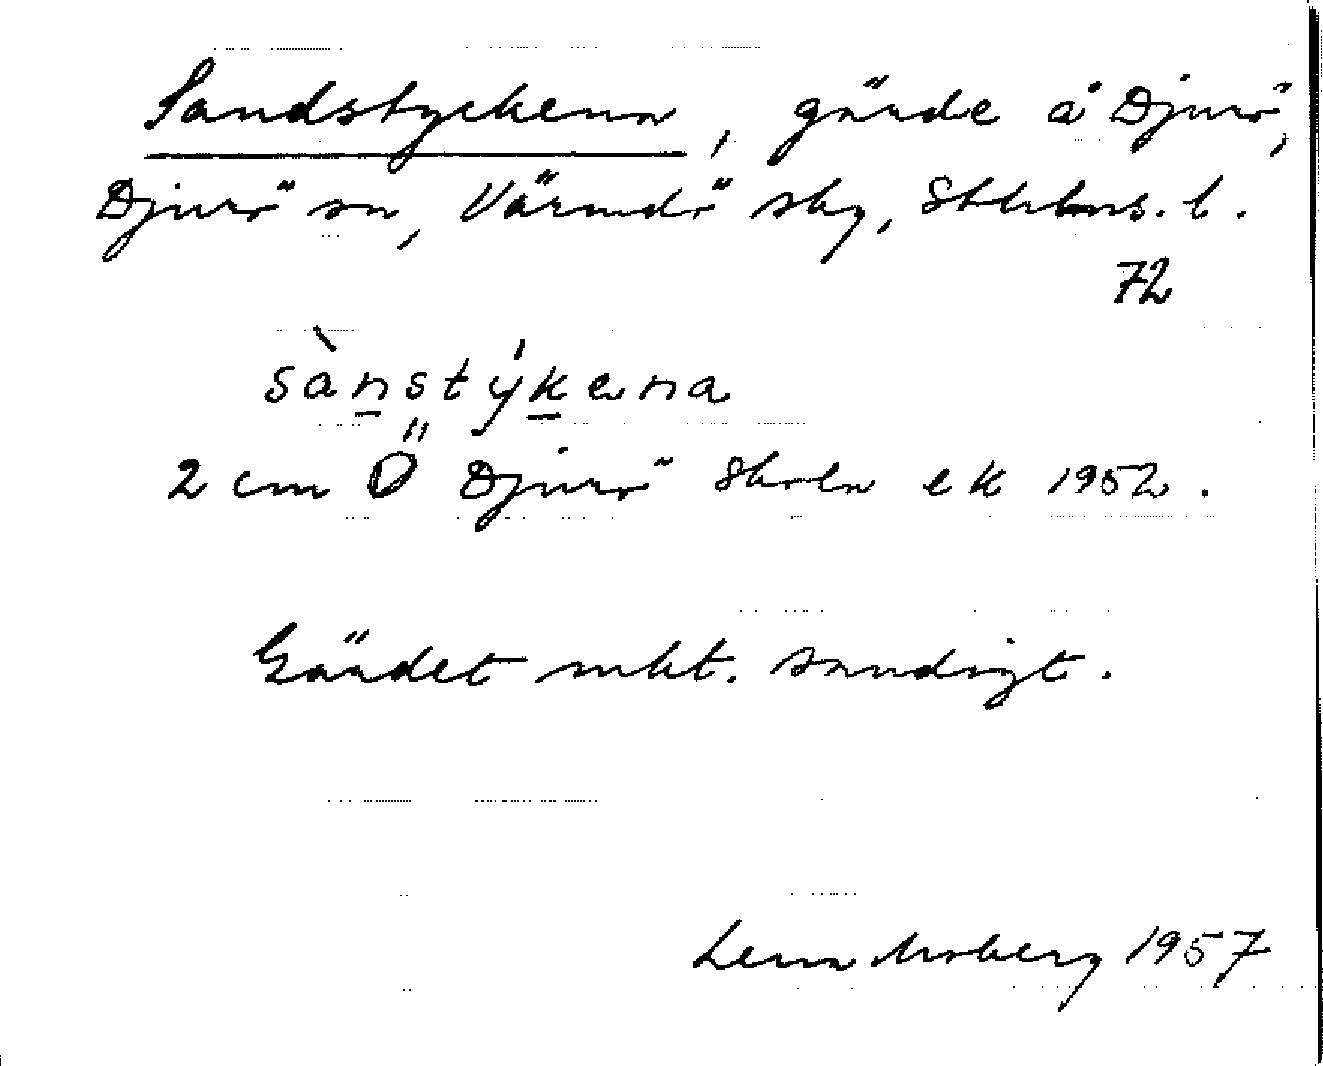 Sandstyckena, gärde å Djurö,
Djurö sn, Värmdö skg, Sthlms. l.
72
sàn̲stýk̲ena
2 cm Ö Djurö Skola ek 1952.
Gärdet mkt. sandigt.
Lena Moberg 1957